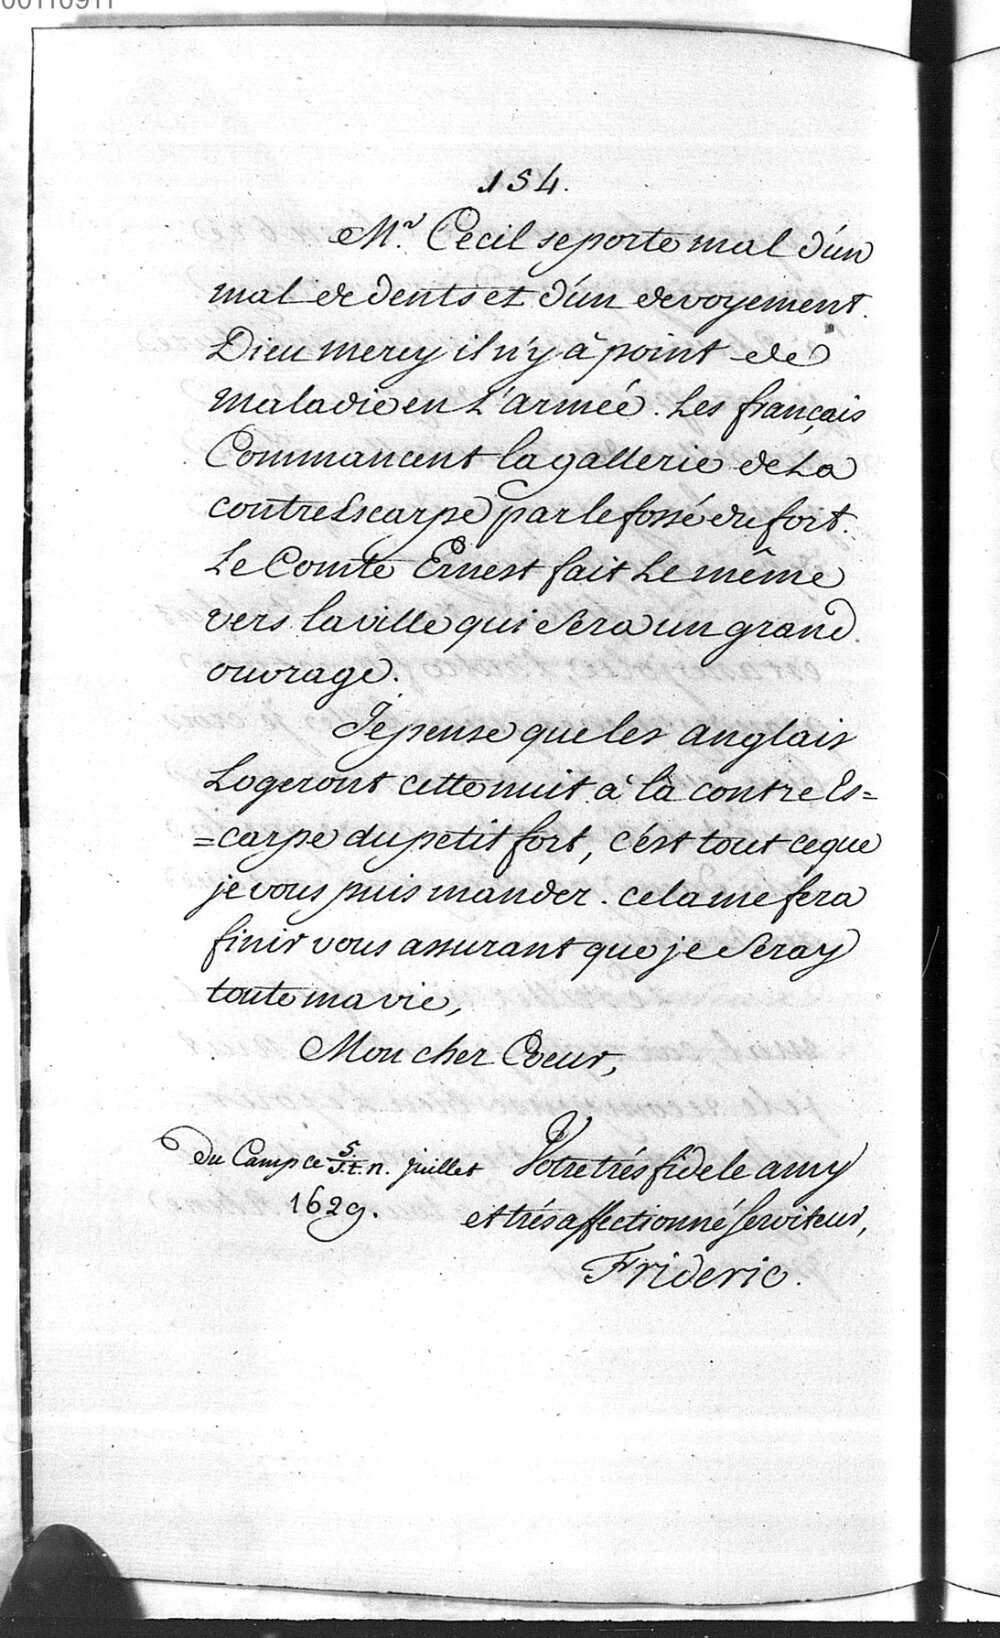 00110911
154.
Mr. Cecil se porte mal d'un
mal de dents et d'un devoyement.
Dieu mercy il n'y à point de
maladie en L'armée. Les français
Commancent la gallerie de La
contreEscarpe par le fossé du fort.
Le Comte Ernest fait Le même
vers la ville qui Sera un grand
ouvrage.
Je pense que les anglais
Logeront cette nuit à la contre Es=
=carpe du petit fort, c'est tout ce que
je vous puis mander. cela me fera
finir vous assurant que je Seray
toute ma vie,
Mon cher Coeur,
Du Camp ce 5./St. n. juillet Votre très fidele amy
1629. et très affectionné Serviteur,
Frideric.